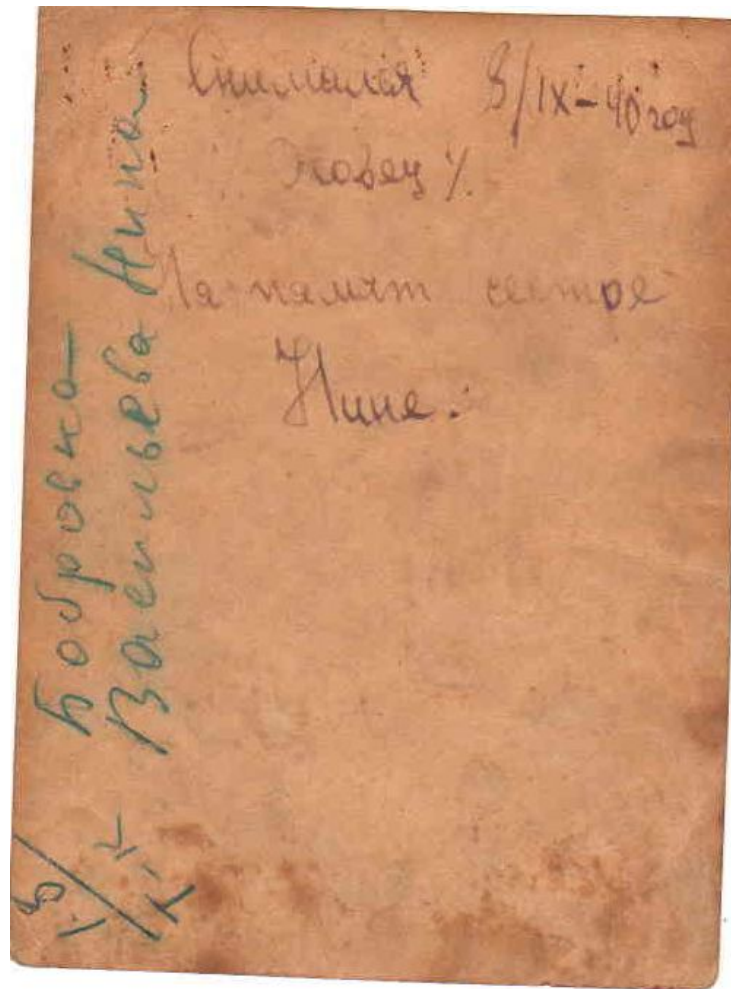 Снимался 8/IX-40 год
На памят сестре
Нине.
Бобровка
Васильева Нина